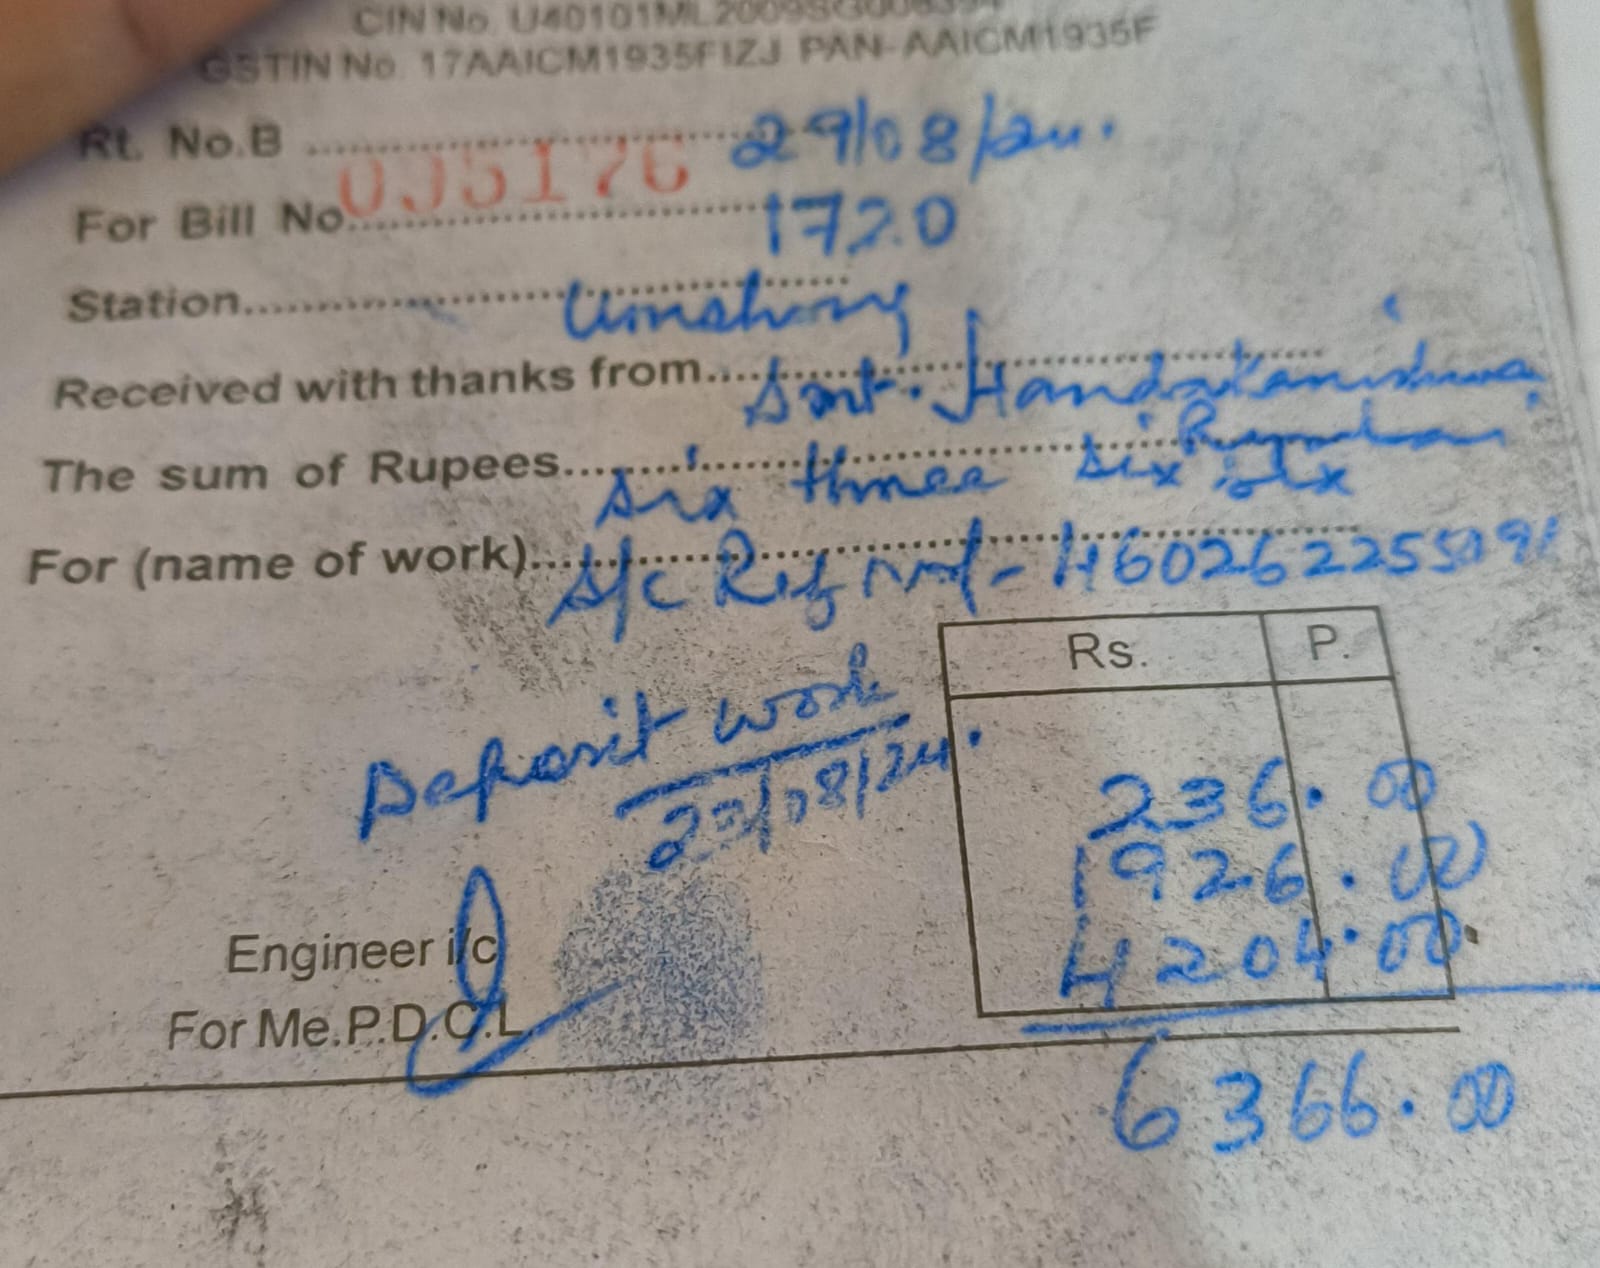 CIN No. U40101ML2009SG
GSTIN No. 17AAICM1935F1ZJ PAN-AAICM1935F
Rt. No.B .......... 29/08/24.
For Bill No.......... 1720
Station.......... Umshing
Received with thanks from.......... Smt.
The sum of Rupees.......... Six three six six
For (name of work).......... A/c Ref No/-
Rs. P.
Deposit work
236.00
/08/24.
1926.00
4204.00
Engineer i/c
For Me.P.D.C.L.
6366.00